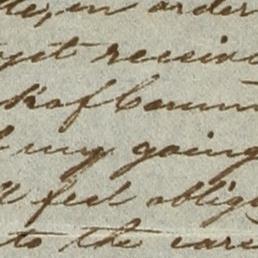 in order
yet receiv
k of Comm
my going
ll feel oblig
to the care